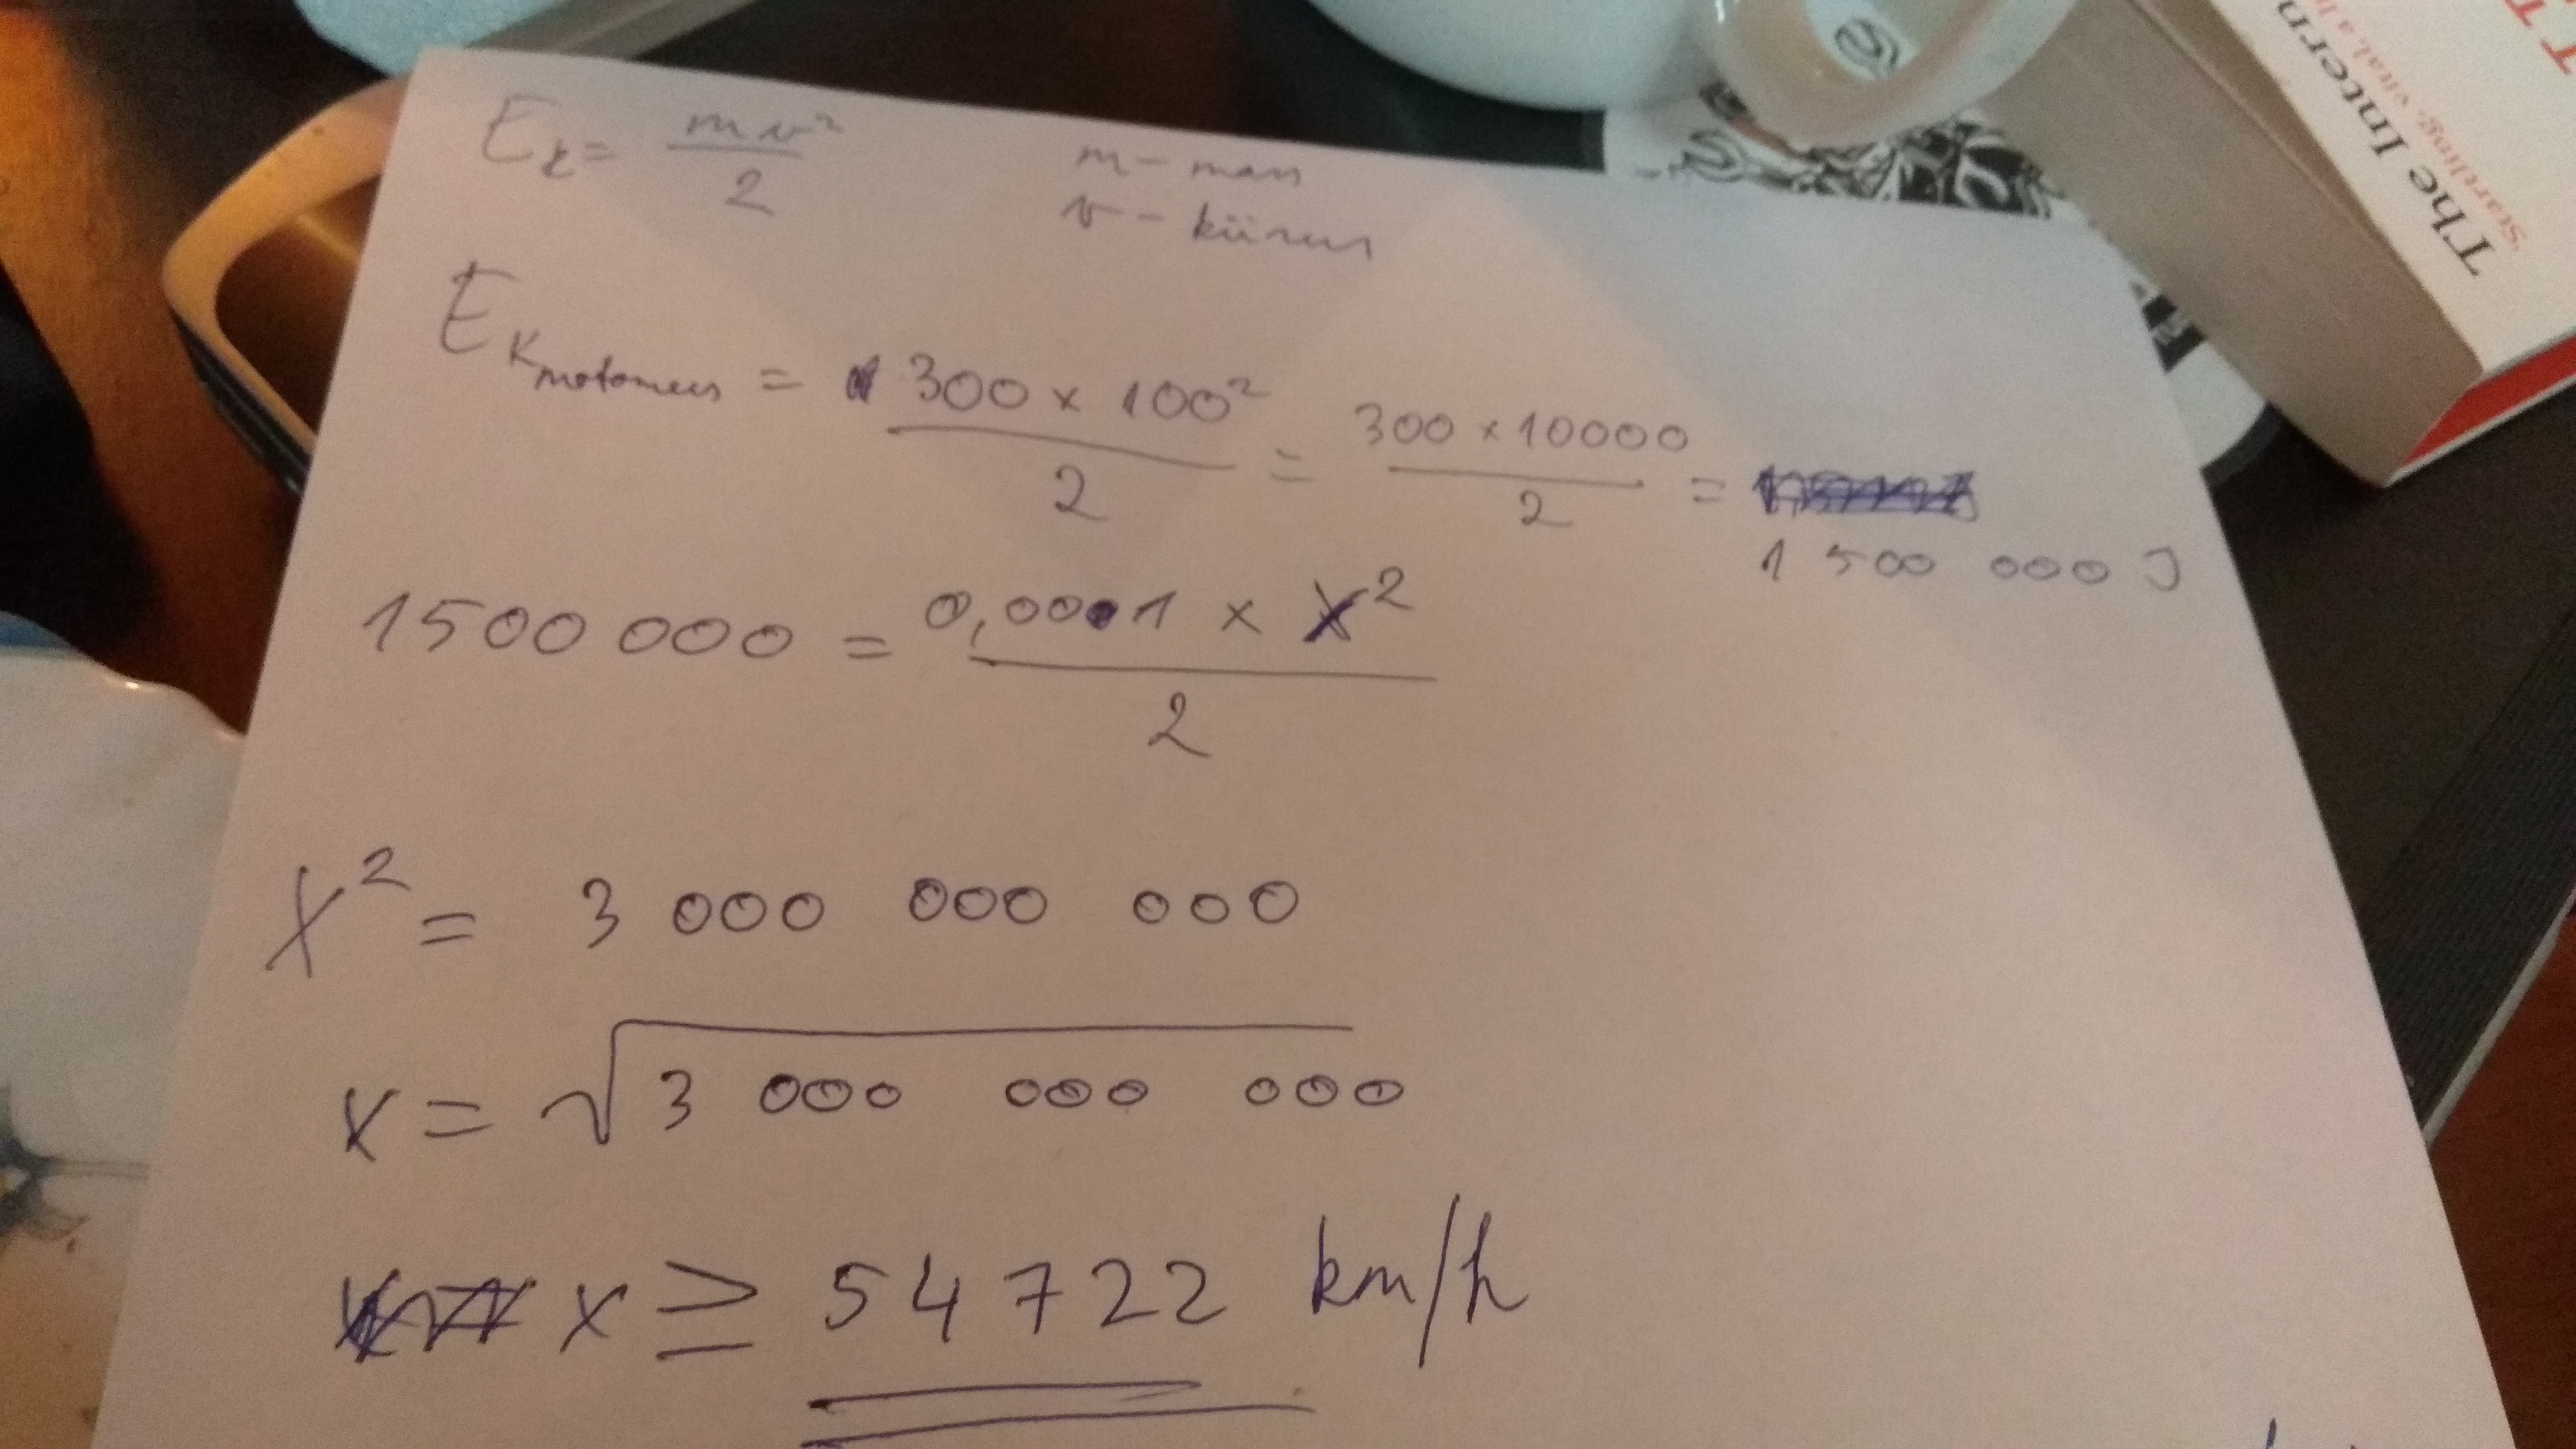 E_k = mv²/2 m – mass
v – kiirus
E_K motomees = 300 x 100²/2 = 300 x 10000/2 =
1 500 000 J
1500 000 = 0,0001 x x²/2
x² = 3 000 000 000
x = √3 000 000 000
x ≥ 54722 km/h
The Intern
Startling, vital, a